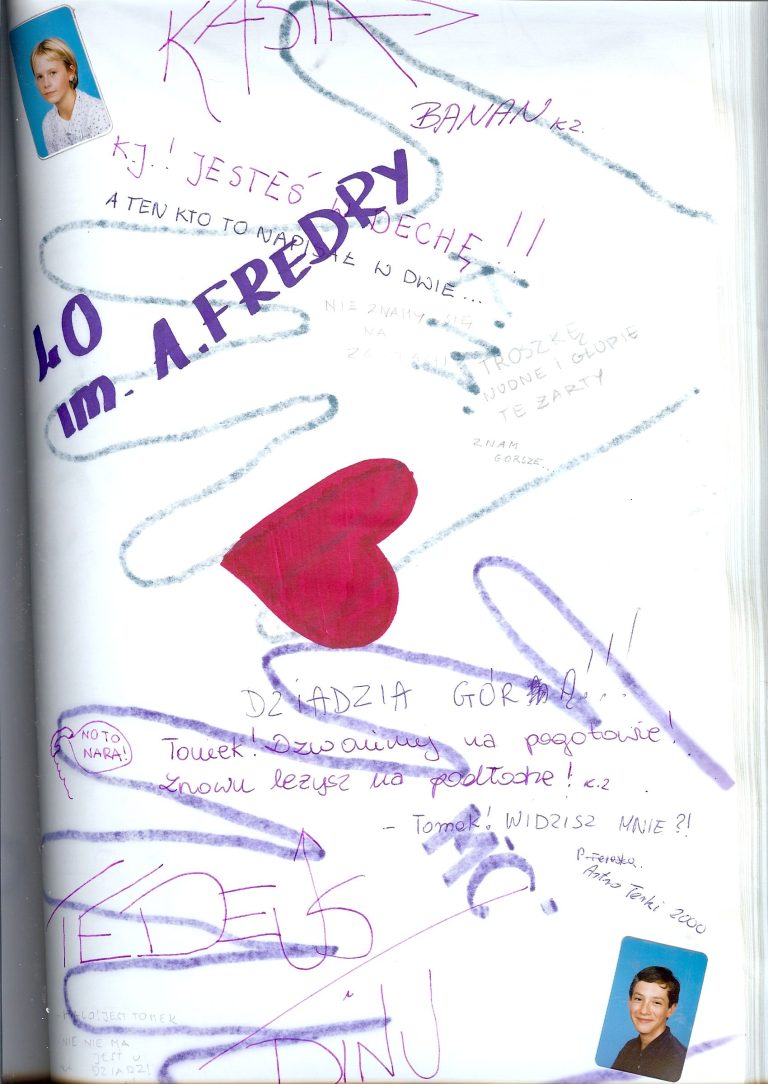 KASIA
BANAN K.Z.
K.J.! JESTEŚ W DECHĘ!!
A TEN KTO TO NAPISAŁ W DWIE...
LO
IM. A. FREDRY
NIE ZNAMY SIĘ
NA
TROSZKĘ
NUDNE I GŁUPIE
TE ŻARTY
ZNAM
GORSZE...
DZIADZIA GÓRĄ!!!
NO TO
NARA!
Tomek! Dzwonimy na pogotowie!
Znowu leżysz na podłodze! K.Z
- Tomek! WIDZISZ MNIE?!
MC.
2000
TEDEUS
i
DINU
HALO! JEST TOMEK
NIE NIE MA
JEST U
DZIADZI